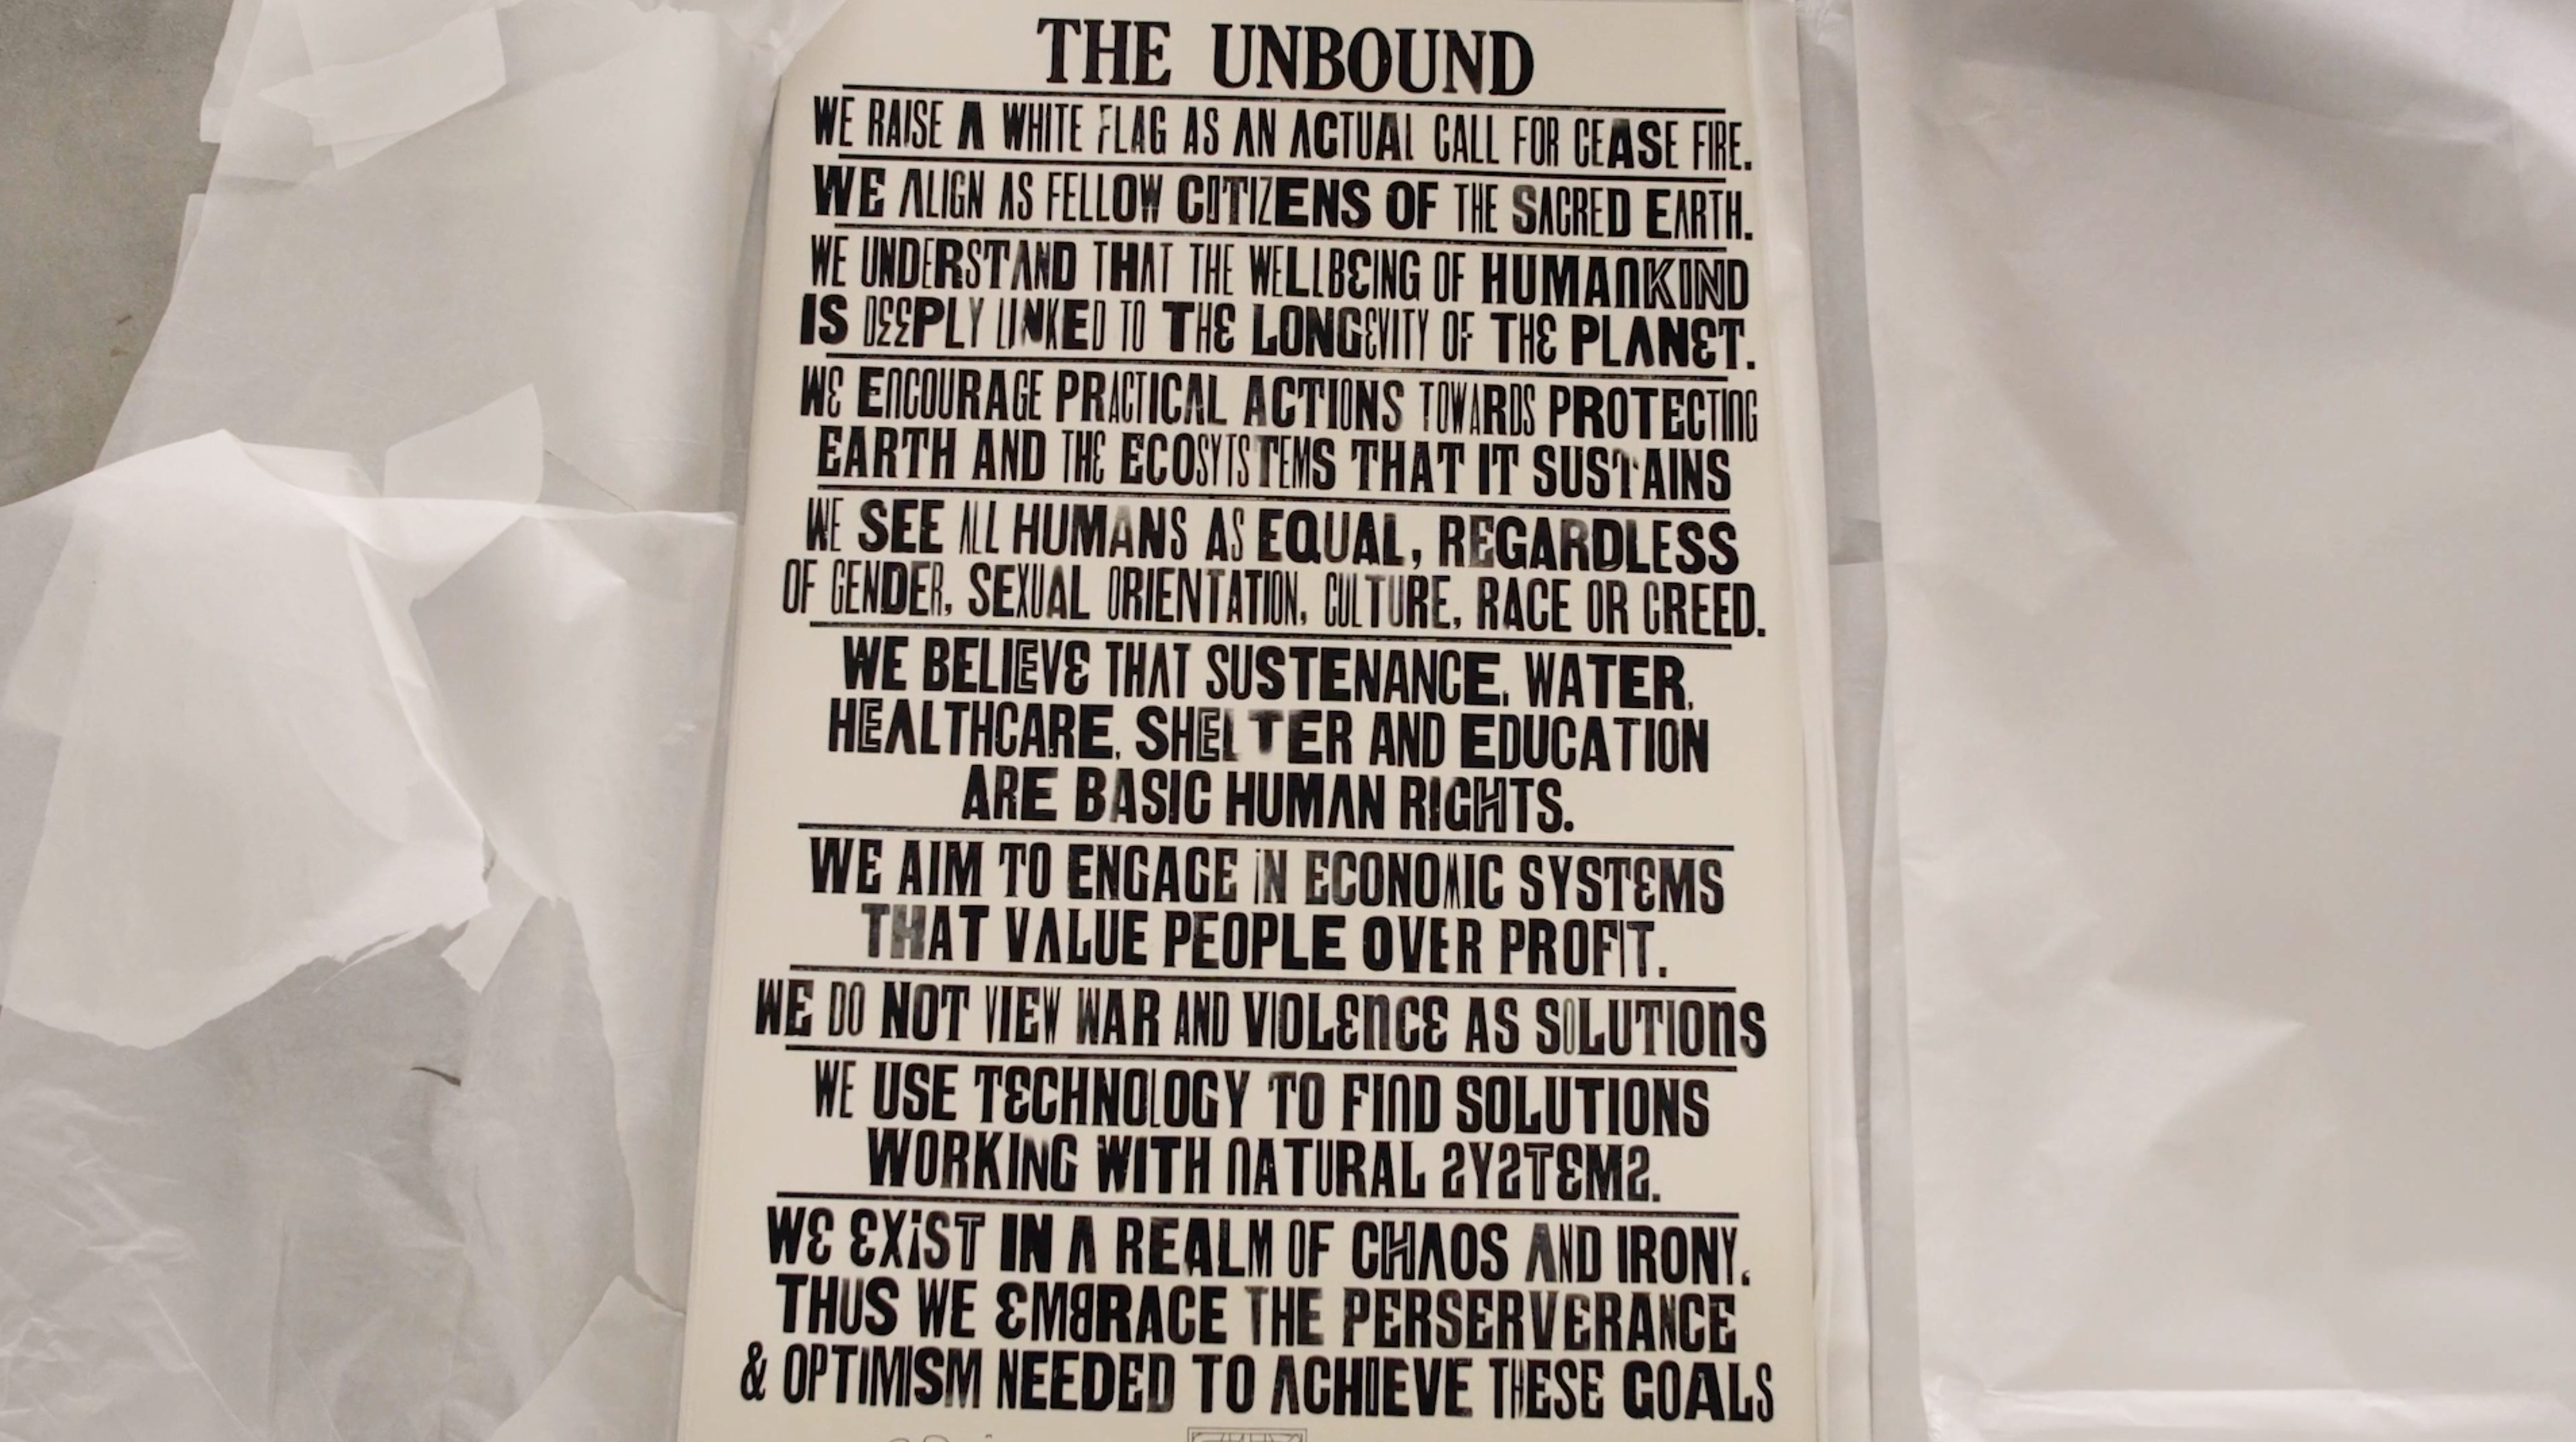 THE UNBOUND
WE RAISE A WHITE FLAG AS AN ACTUAL CALL FOR CEASE FIRE.
WE ALIGN AS FELLOW CITIZENS OF THE SACRED EARTH.
WE UNDERSTAND THAT THE WELLBEING OF HUMANKIND
IS DEEPLY LINKED TO THE LONGEVITY OF THE PLANET.
WE ENCOURAGE PRACTICAL ACTIONS TOWARDS PROTECTING
EARTH AND THE ECOSYTSTEMS THAT IT SUSTAINS
WE SEE ALL HUMANS AS EQUAL, REGARDLESS
OF GENDER, SEXUAL ORIENTATION, CULTURE, RACE OR CREED.
WE BELIEVE THAT SUSTENANCE, WATER,
HEALTHCARE, SHELTER AND EDUCATION
ARE BASIC HUMAN RIGHTS.
WE AIM TO ENGAGE IN ECONOMIC SYSTEMS
THAT VALUE PEOPLE OVER PROFIT.
WE DO NOT VIEW WAR AND VIOLENCE AS SOLUTIONS
WE USE TECHNOLOGY TO FIND SOLUTIONS
WORKING WITH NATURAL SYSTEMS.
WE EXIST IN A REALM OF CHAOS AND IRONY.
THUS WE EMBRACE THE PERSERVERANCE
& OPTIMISM NEEDED TO ACHIEVE THESE GOALS